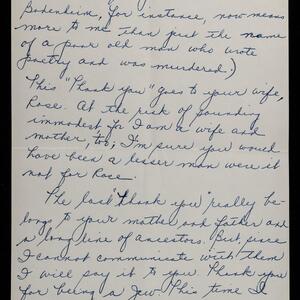 Bodenheim, for instance, now means
more to me than just the name
of a poor old man who wrote
poetry and was murdered.)
This "Thank you" goes to your wife,
Rose. At the risk of sounding
immodest for I am a wife and
mother, too; I'm sure you would
have been a lesser man were it
not for Rose.
The last "thank you" really be-
longs to your mother and father and
a long line of ancestors. But, since
I cannot communicate with them
I will say it to you. Thank you
for being a Jew. This time I